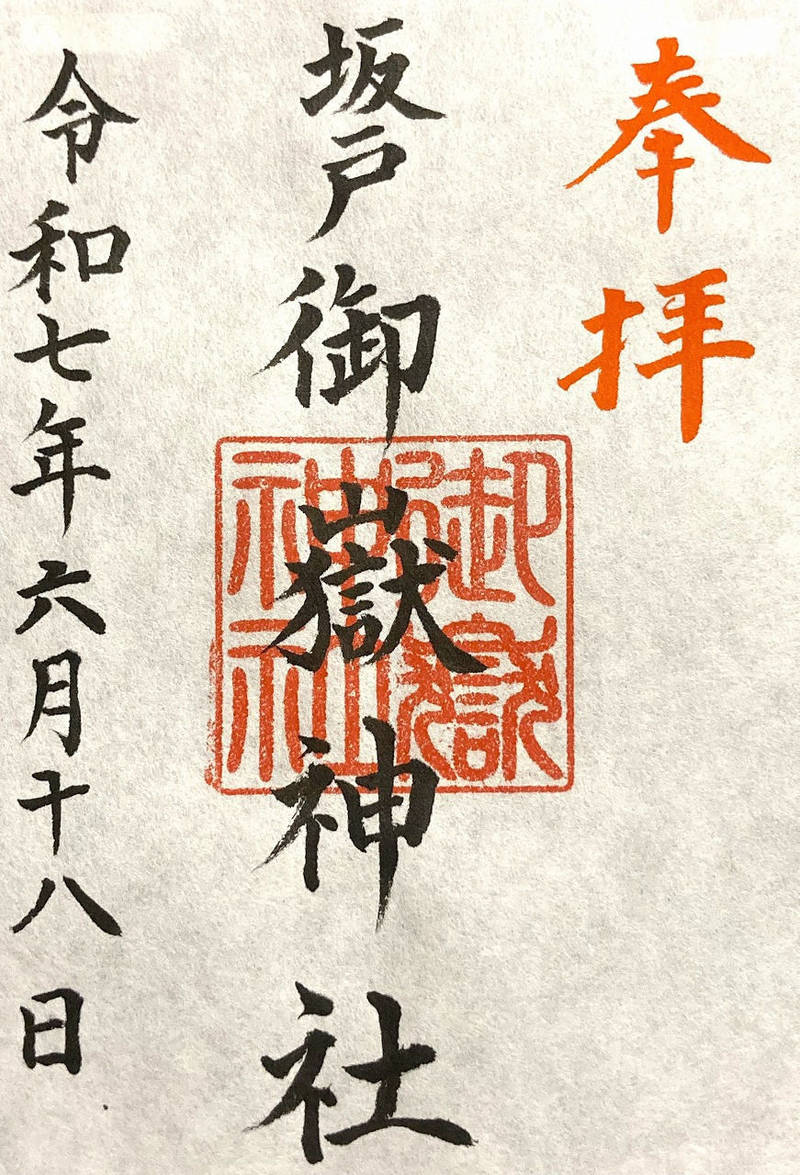 奉拝
坂戸御嶽神社
御嶽神社
令和七年六月十八日